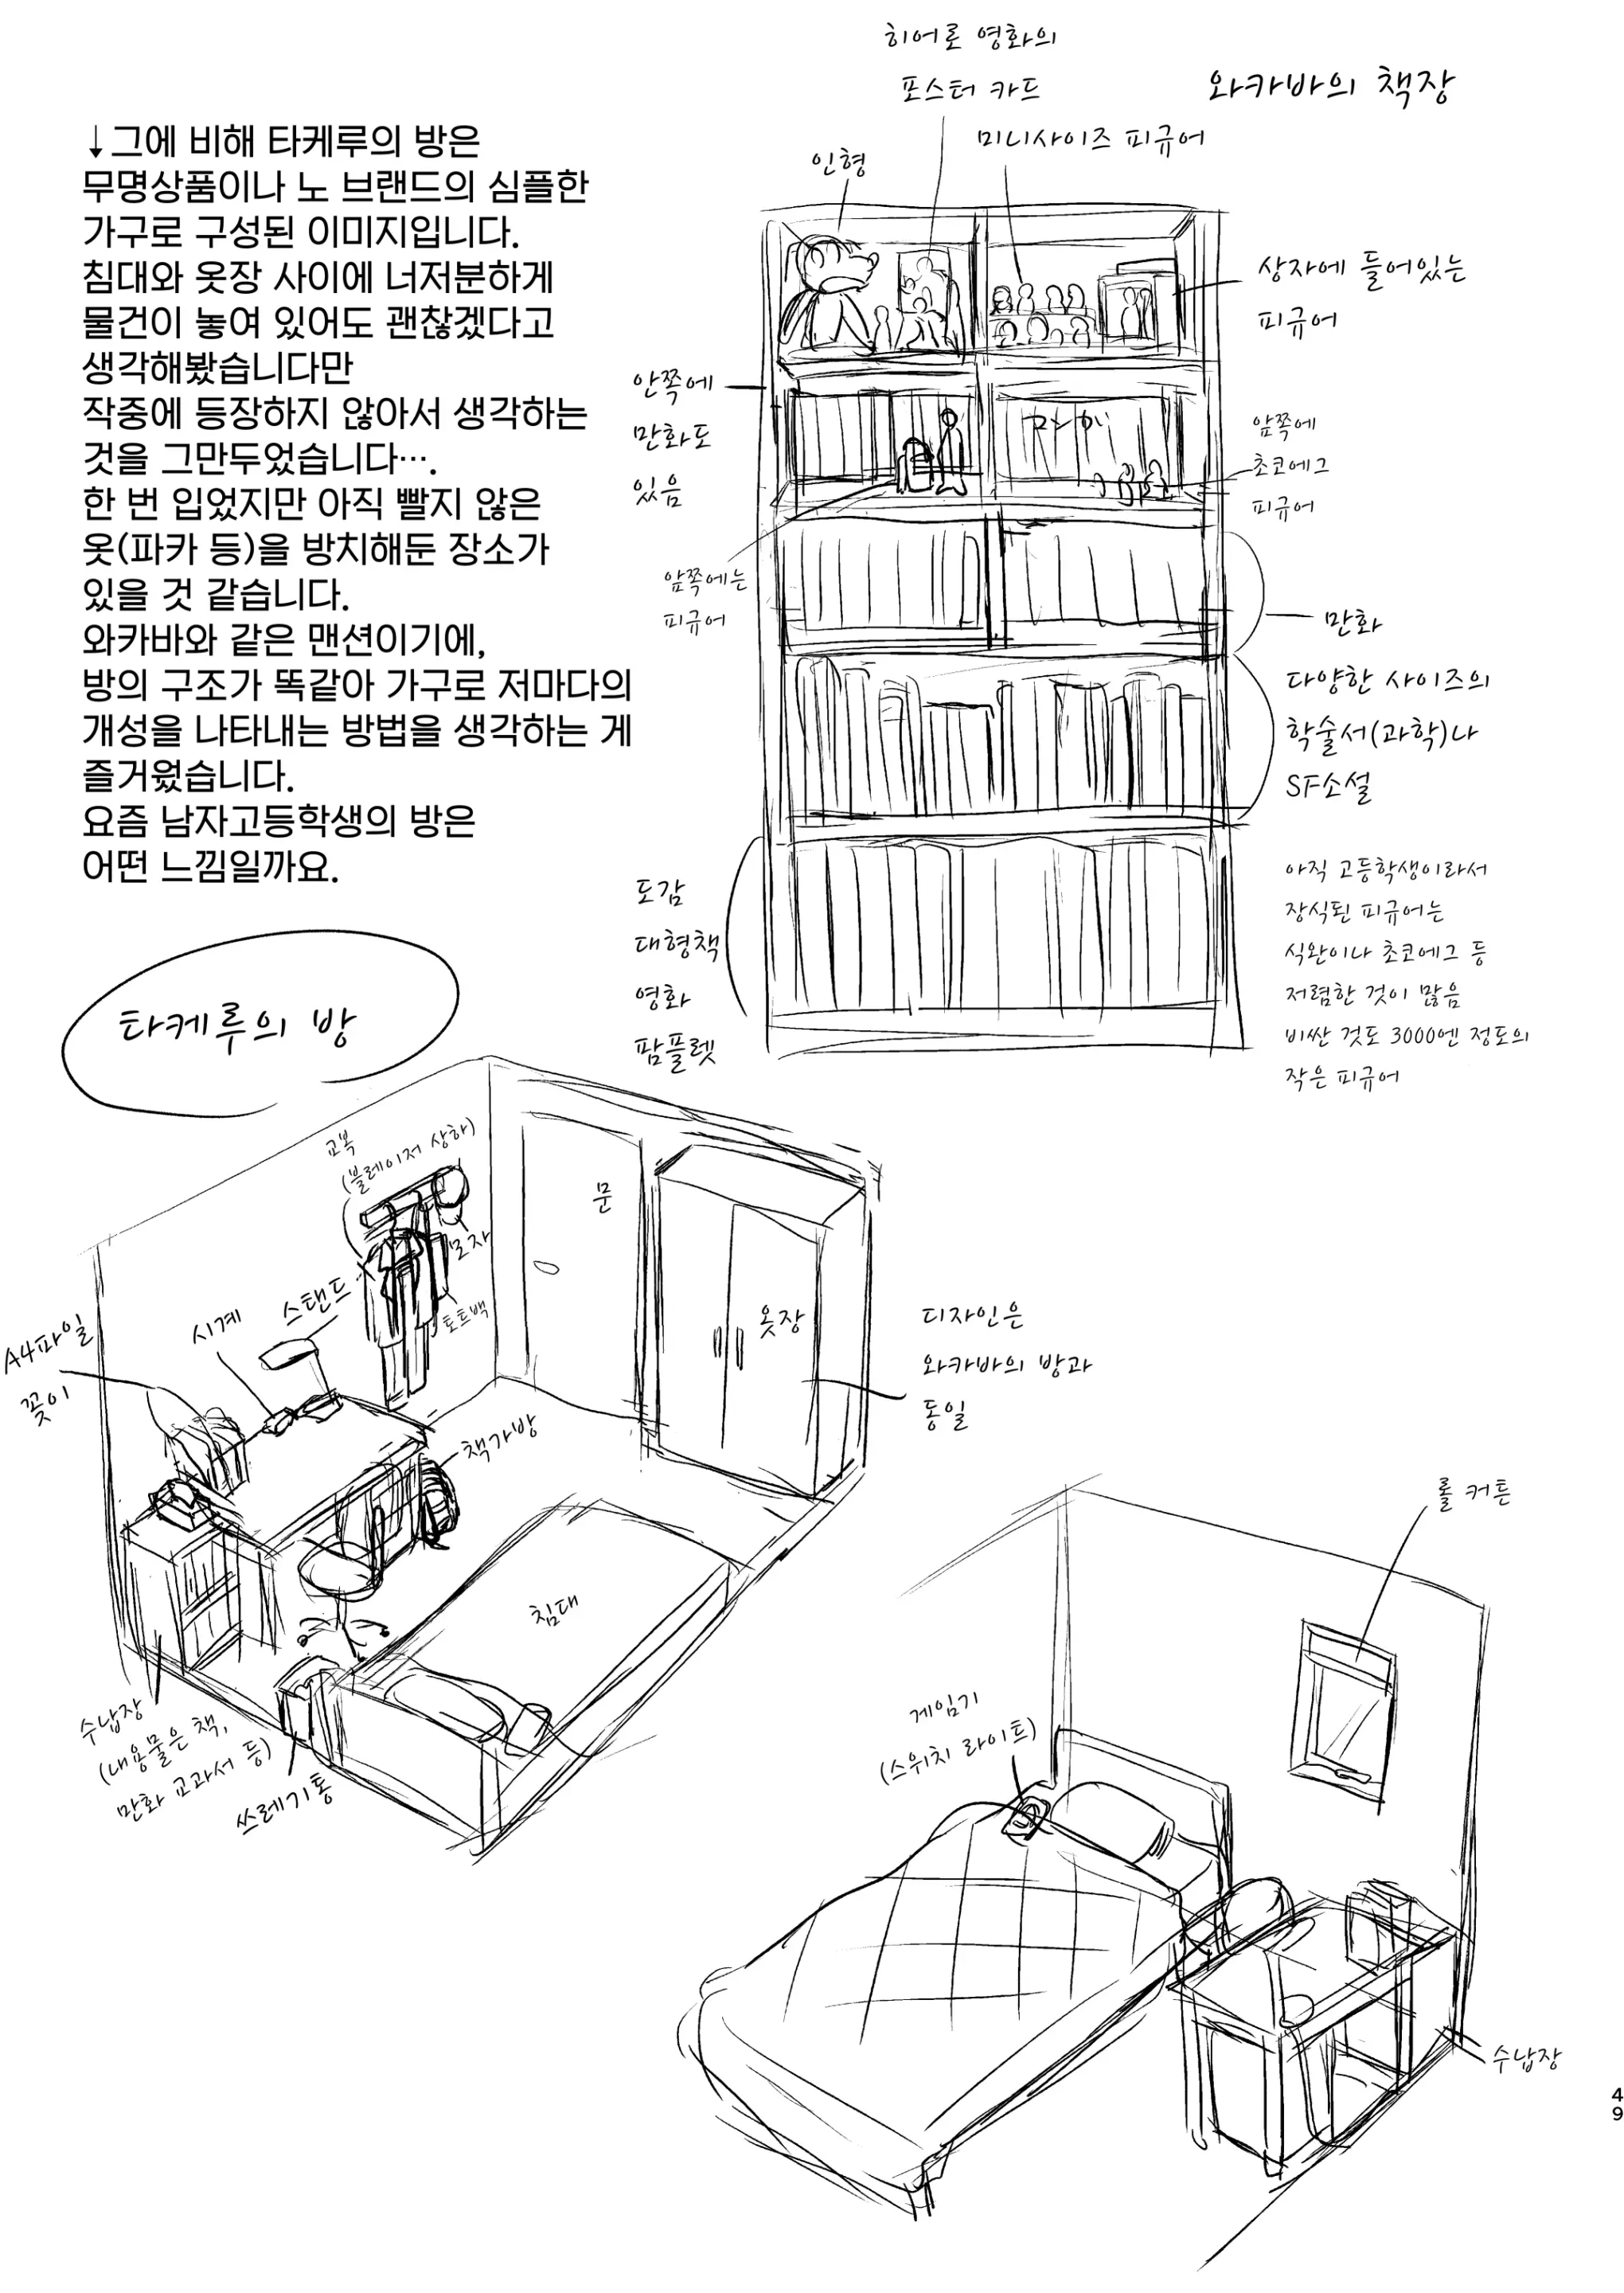 ↓그에 비해 타케루의 방은
무명상품이나 노 브랜드의 심플한
가구로 구성된 이미지입니다.
침대와 옷장 사이에 너저분하게
물건이 놓여 있어도 괜찮겠다고
생각해봤습니다만
작중에 등장하지 않아서 생각하는
것을 그만두었습니다….
한 번 입었지만 아직 빨지 않은
옷(파카 등)을 방치해둔 장소가
있을 것 같습니다.
와카바와 같은 맨션이기에,
방의 구조가 똑같아 가구로 저마다의
개성을 나타내는 방법을 생각하는 게
즐거웠습니다.
요즘 남자고등학생의 방은
어떤 느낌일까요.
와카바의 책장
히어로 영화의
포스터 카드
미니사이즈 피규어
인형
상자에 들어있는
피규어
안쪽에
만화도
있음
앞쪽에
초코에그
피규어
앞쪽에는
피규어
만화
다양한 사이즈의
학술서(과학)나
SF소설
도감
대형책
영화
팜플렛
아직 고등학생이라서
장식된 피규어는
식완이나 초코에그 등
저렴한 것이 많음
비싼 것도 3000엔 정도의
작은 피규어
타케루의 방
교복
(블레이저 상하)
모자
토트백
문
옷장
디자인은
와카바의 방과
동일
스탠드
시계
A4파일
꽂이
책가방
침대
수납장
(내용물은 책,
만화 교과서 등)
쓰레기통
롤 커튼
게임기
(스위치 라이트)
수납장
49